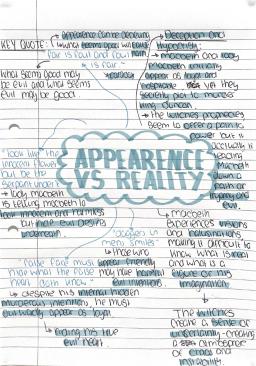 Appearance can be deceiving
KEY QUOTE:
what seems good will
"fair is foul and foul
is fair"
what seems good may
be evil and what seems
evil may be good.
Deception and
Hypocrisy:
→ macbeth and lady
macbeth initially
appear as loyal and
hospitable yet they
secretly plot to murder
king duncan.
→ the witches prophecies
seem to offer a path to
power but it
actually is
leading
macbeth
down a
path of
and
evil.
APPEARENCE
VS REALITY
"look like the
innocent flower
but be the
serpent under it"
→ lady macbeth
is telling macbeth to
look innocent and harmless
but hide evil desires
underneath.
"daggers in
mens smiles"
→ those who
appear friendly
may have harmful
evil intentions.
"false face must
hide what the false
heart doth know"
→ despite his internal hidden
murderous intention, he must
outwardly appear as loyal.
→ hiding his true
evil heart
→ macbeth
experiences visions
and hallucinations
making it difficult to
know what is real
and what is a
figure of his
imagination
→ The witches
create a sense of
uncertainty - creating
an atmosphere
of
instability.